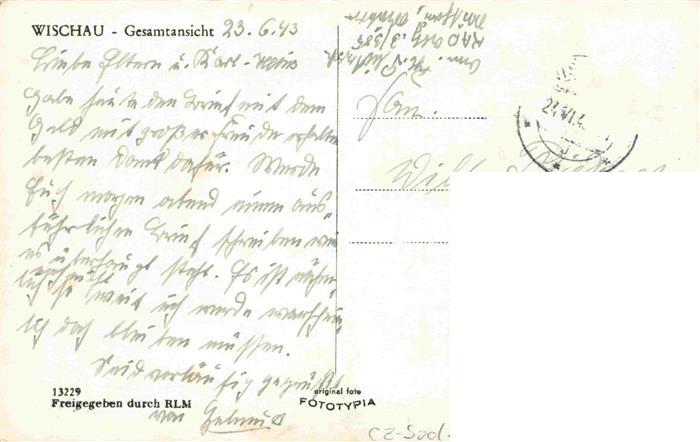 WISCHAU - Gesamtansicht 23.6.43
Liebe Eltern u. Karl-Heinz
Habe heute den Brief mit dem
Geld mit großer Freude erhalten
besten Dank dafür. Werde
Euch morgen abend einen aus-
führlichen Brief schreiben wie
es überhaupt steht. Es ist nähm-
lich so weit ich werde warschein-
lich doch bleiben müssen.
Seid vorläufig gegrüßt
von Helmut
13229
Freigegeben durch RLM
original foto
FOTOTYPIA
RAD
Fam.
Willi
24.VI.4
CZ-Sud.